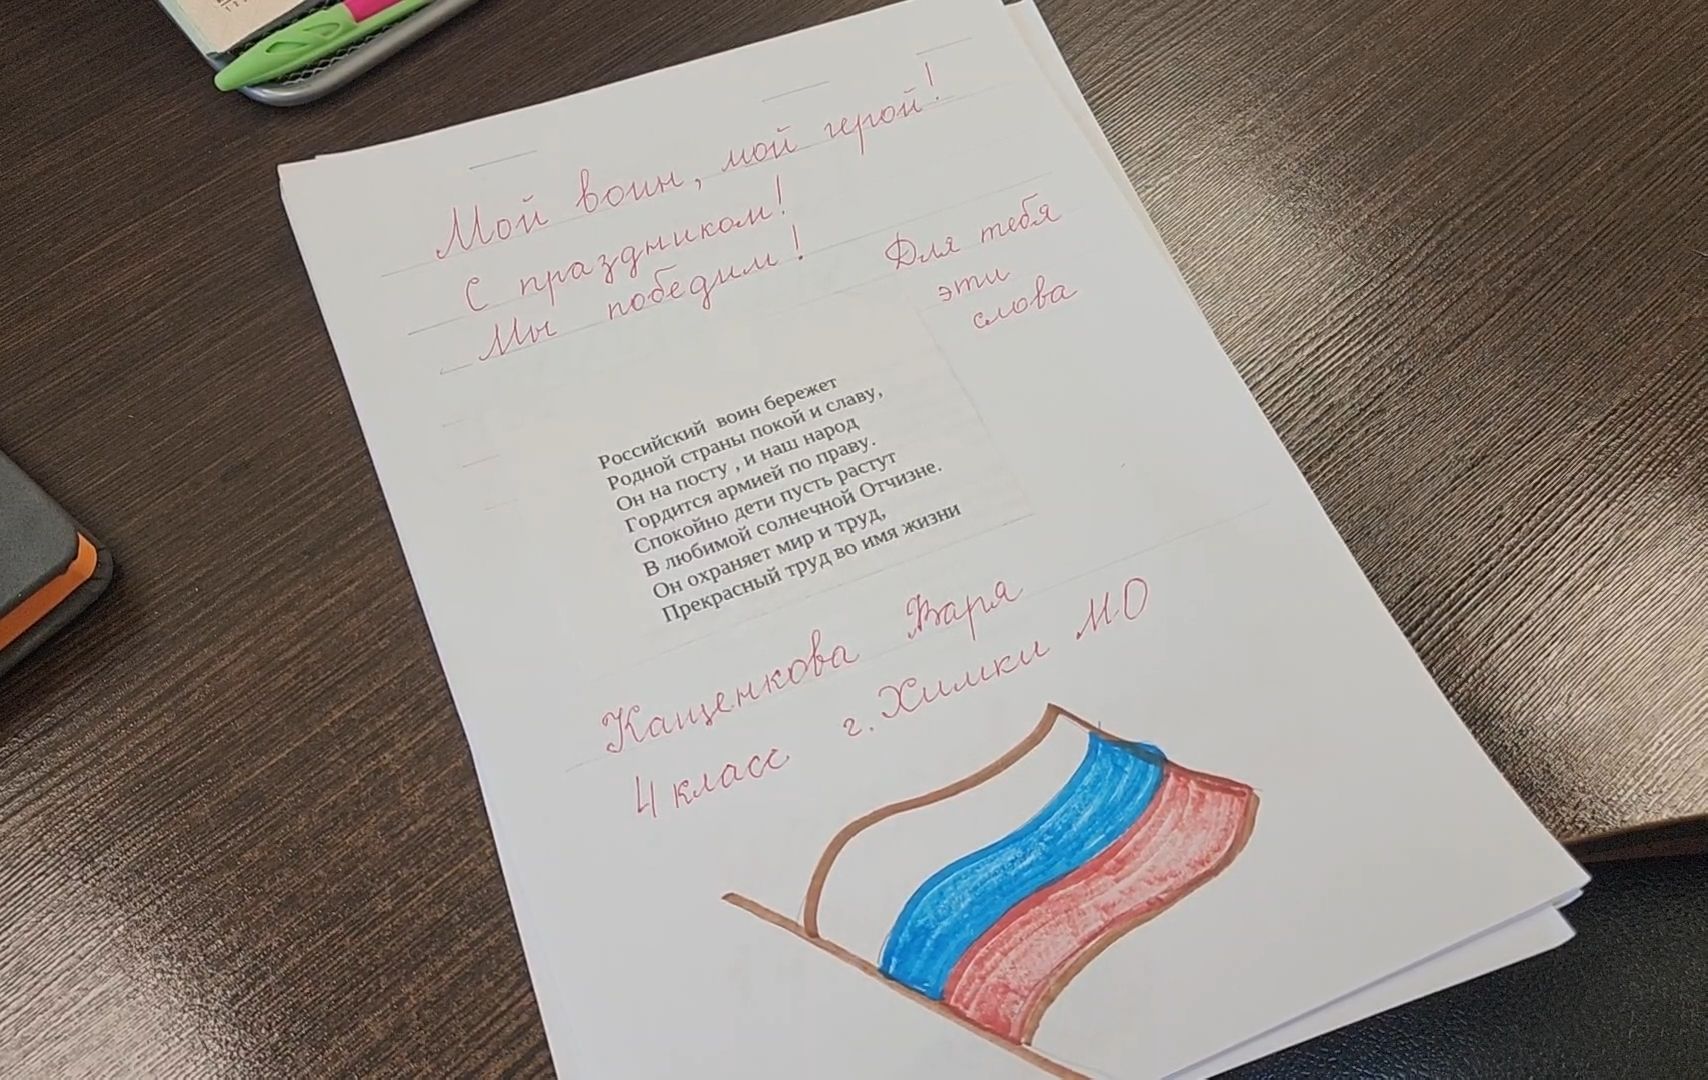 Мой воин, мой герой!
С праздником!
Мы победим!
Для тебя
эти
слова
Российский воин бережет
Родной страны покой и славу,
Он на посту , и наш народ
Гордится армией по праву.
Спокойно дети пусть растут
В любимой солнечной Отчизне.
Он охраняет мир и труд,
Прекрасный труд во имя жизни
Кащенкова Варя
4 класс г. Химки МО